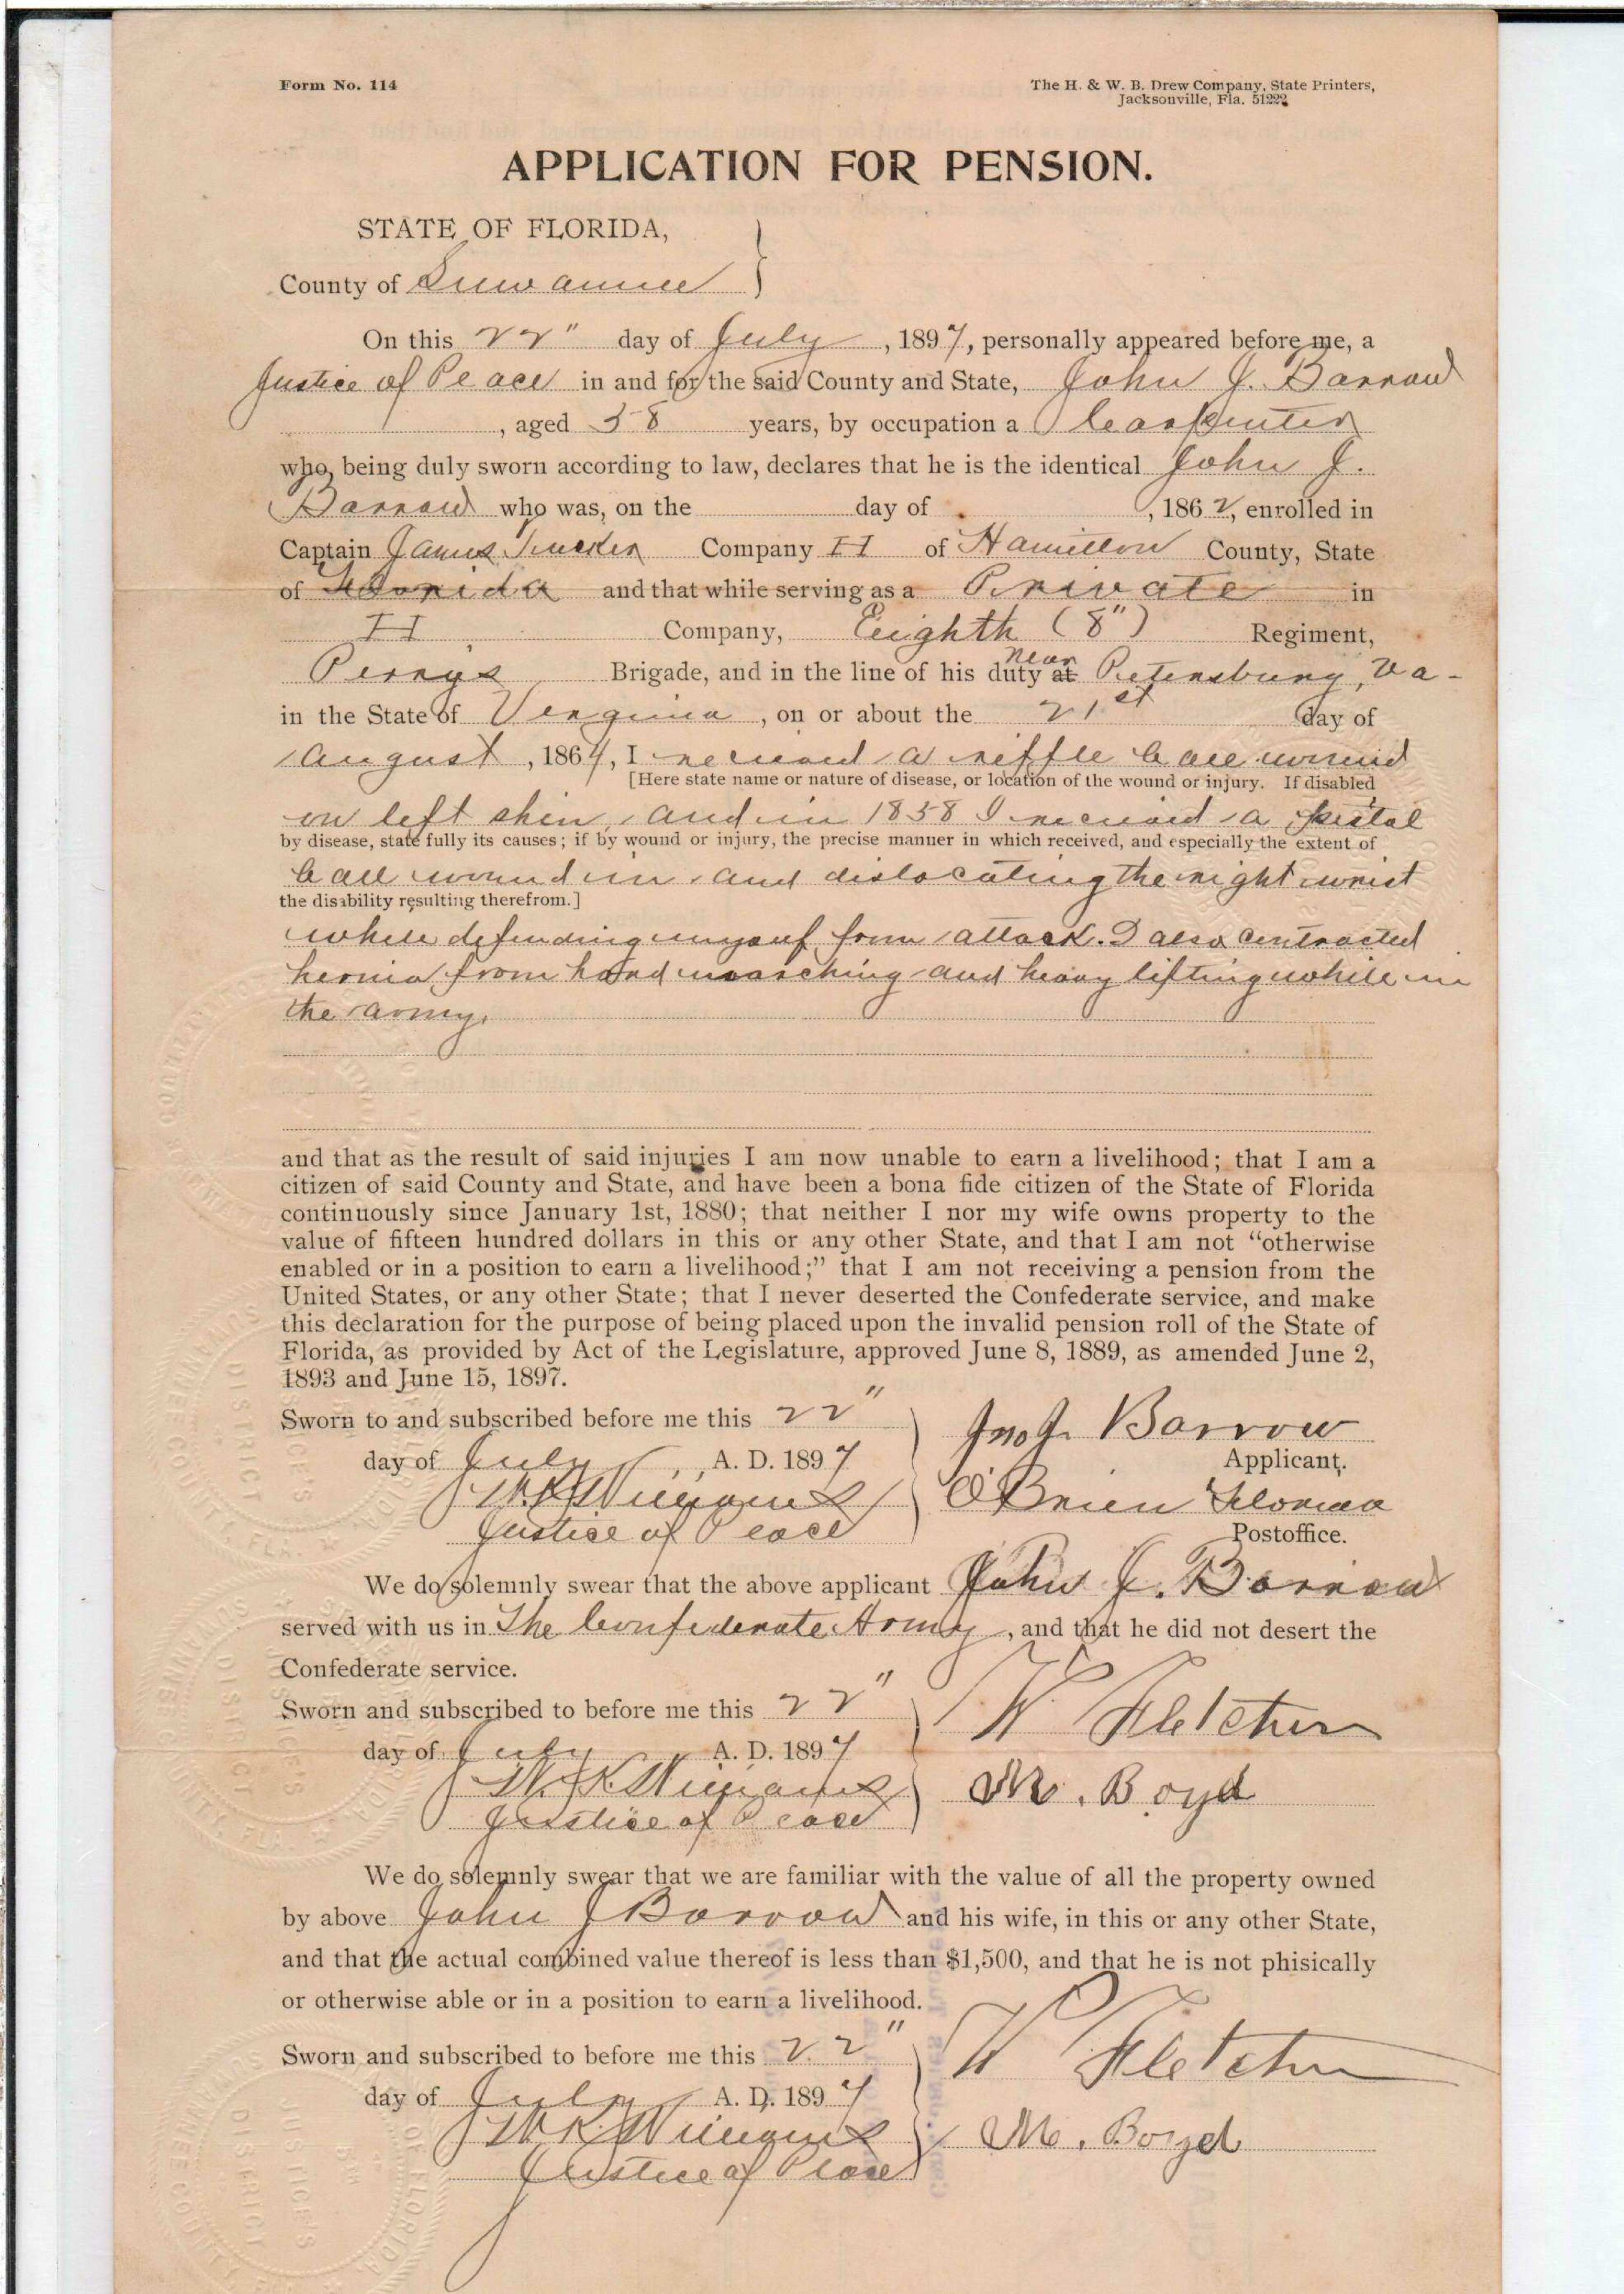 Form No. 114
The H. & W. B. Drew Company, State Printers,
Jacksonville, Fla. 51222
APPLICATION FOR PENSION.
STATE OF FLORIDA,
County of Suwannee
On this 22" day of July, 1897, personally appeared before me, a
Justice of Peace in and for the said County and State, John J. Barrow
, aged 58 years, by occupation a Carpenter
who, being duly sworn according to law, declares that he is the identical John J.
Barrow who was, on the day of , 1862, enrolled in
Captain James Tucker Company H of Hamilton County, State
of Florida and that while serving as a Private in
H Company, Eighth (8") Regiment,
Perrys Brigade, and in the line of his duty at near Petersburg, Va-
in the State of Virginia, on or about the 21st day of
August, 1864, I received a riffle ball wound
[Here state name or nature of disease, or location of the wound or injury. If disabled
on left shin, and in 1858 I received a pistal
by disease, state fully its causes; if by wound or injury, the precise manner in which received, and especially the extent of
ball wound in and dislocating the right wrist
the disability resulting therefrom.]
while defending myself from attack. I also contracted
hernia from hard marching and heavy lifting while in
the army.
and that as the result of said injuries I am now unable to earn a livelihood; that I am a
citizen of said County and State, and have been a bona fide citizen of the State of Florida
continuously since January 1st, 1880; that neither I nor my wife owns property to the
value of fifteen hundred dollars in this or any other State, and that I am not "otherwise
enabled or in a position to earn a livelihood;" that I am not receiving a pension from the
United States, or any other State; that I never deserted the Confederate service, and make
this declaration for the purpose of being placed upon the invalid pension roll of the State of
Florida, as provided by Act of the Legislature, approved June 8, 1889, as amended June 2,
1893 and June 15, 1897.
Sworn to and subscribed before me this 22" Jno J. Barrow
day of July, A. D. 1897 Applicant.
W. K. Williams O'Brien Florida
Justice of Peace Postoffice.
We do solemnly swear that the above applicant John J. Barrow
served with us in The Confederate Army, and that he did not desert the
Confederate service.
Sworn and subscribed to before me this 22" W Fletcher
day of July A. D. 1897
W. K. Williams M. Boyd
Justice of Peace
We do solemnly swear that we are familiar with the value of all the property owned
by above John J Barrow and his wife, in this or any other State,
and that the actual combined value thereof is less than $1,500, and that he is not phisically
or otherwise able or in a position to earn a livelihood.
Sworn and subscribed to before me this 22" W Fletcher
day of July A. D. 1897
W. K. Williams M. Boyd
Justice of Peace